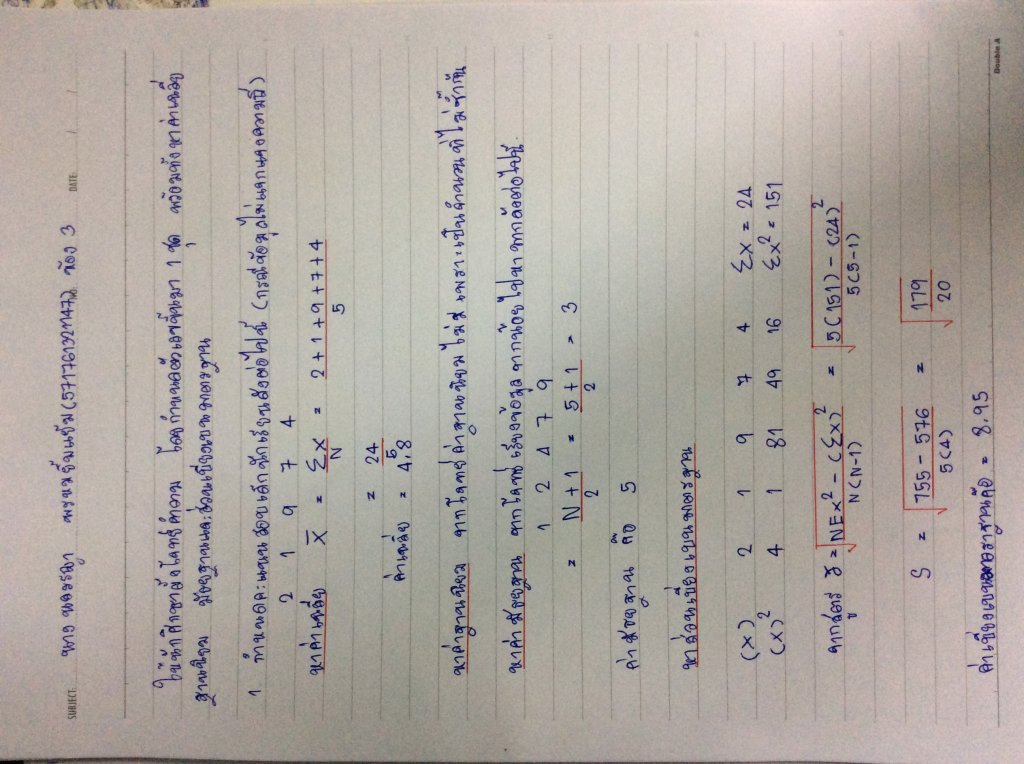 SUBJECT: นาง นอรรญา พรหมยิ้มแย้ม (57176132147) No. ห้อง 3 DATE / /
ให้นักศึกษาสร้างโจทย์คำถาม โดยกำหนดตัวเลขขึ้นมา 1 ชุด พร้อมทั้งหาค่าเฉลี่ย
ฐานนิยม มัธยฐานและส่วนเบี่ยงเบนมาตรฐาน
1. กำหนดคะแนนสอบเด็กนักเรียนดังต่อไปนี้ (กรณีข้อมูลไม่แจกแจงความถี่)
2 1 9 7 4
หาค่าเฉลี่ย X̄ = ΣX/N = 2+1+9+7+4/5
= 24/5
ค่าเฉลี่ย = 4.8
หาค่าฐานนิยม จากโจทย์ค่าฐานนิยมไม่มี เพราะเป็นจำนวนที่ไม่ซ้ำกัน
หาค่ามัธยฐาน จากโจทย์ เรียงข้อมูลจากน้อยไปหามากดังต่อไปนี้
1 2 4 7 9
= N+1/2 = 5+1/2 = 3
ค่ามัธยฐาน คือ 5
หาส่วนเบี่ยงเบนมาตรฐาน
(X) 2 1 9 7 4 ΣX = 24
(X)² 4 1 81 49 16 ΣX² = 151
จากสูตร = √NΣX² - (ΣX)²/N(N-1) = √5(151) - (24)²/5(5-1)
S = √755 - 576/5(4) = √179/20
ค่าเบี่ยงเบนมาตราฐานคือ = 8.95
Double A